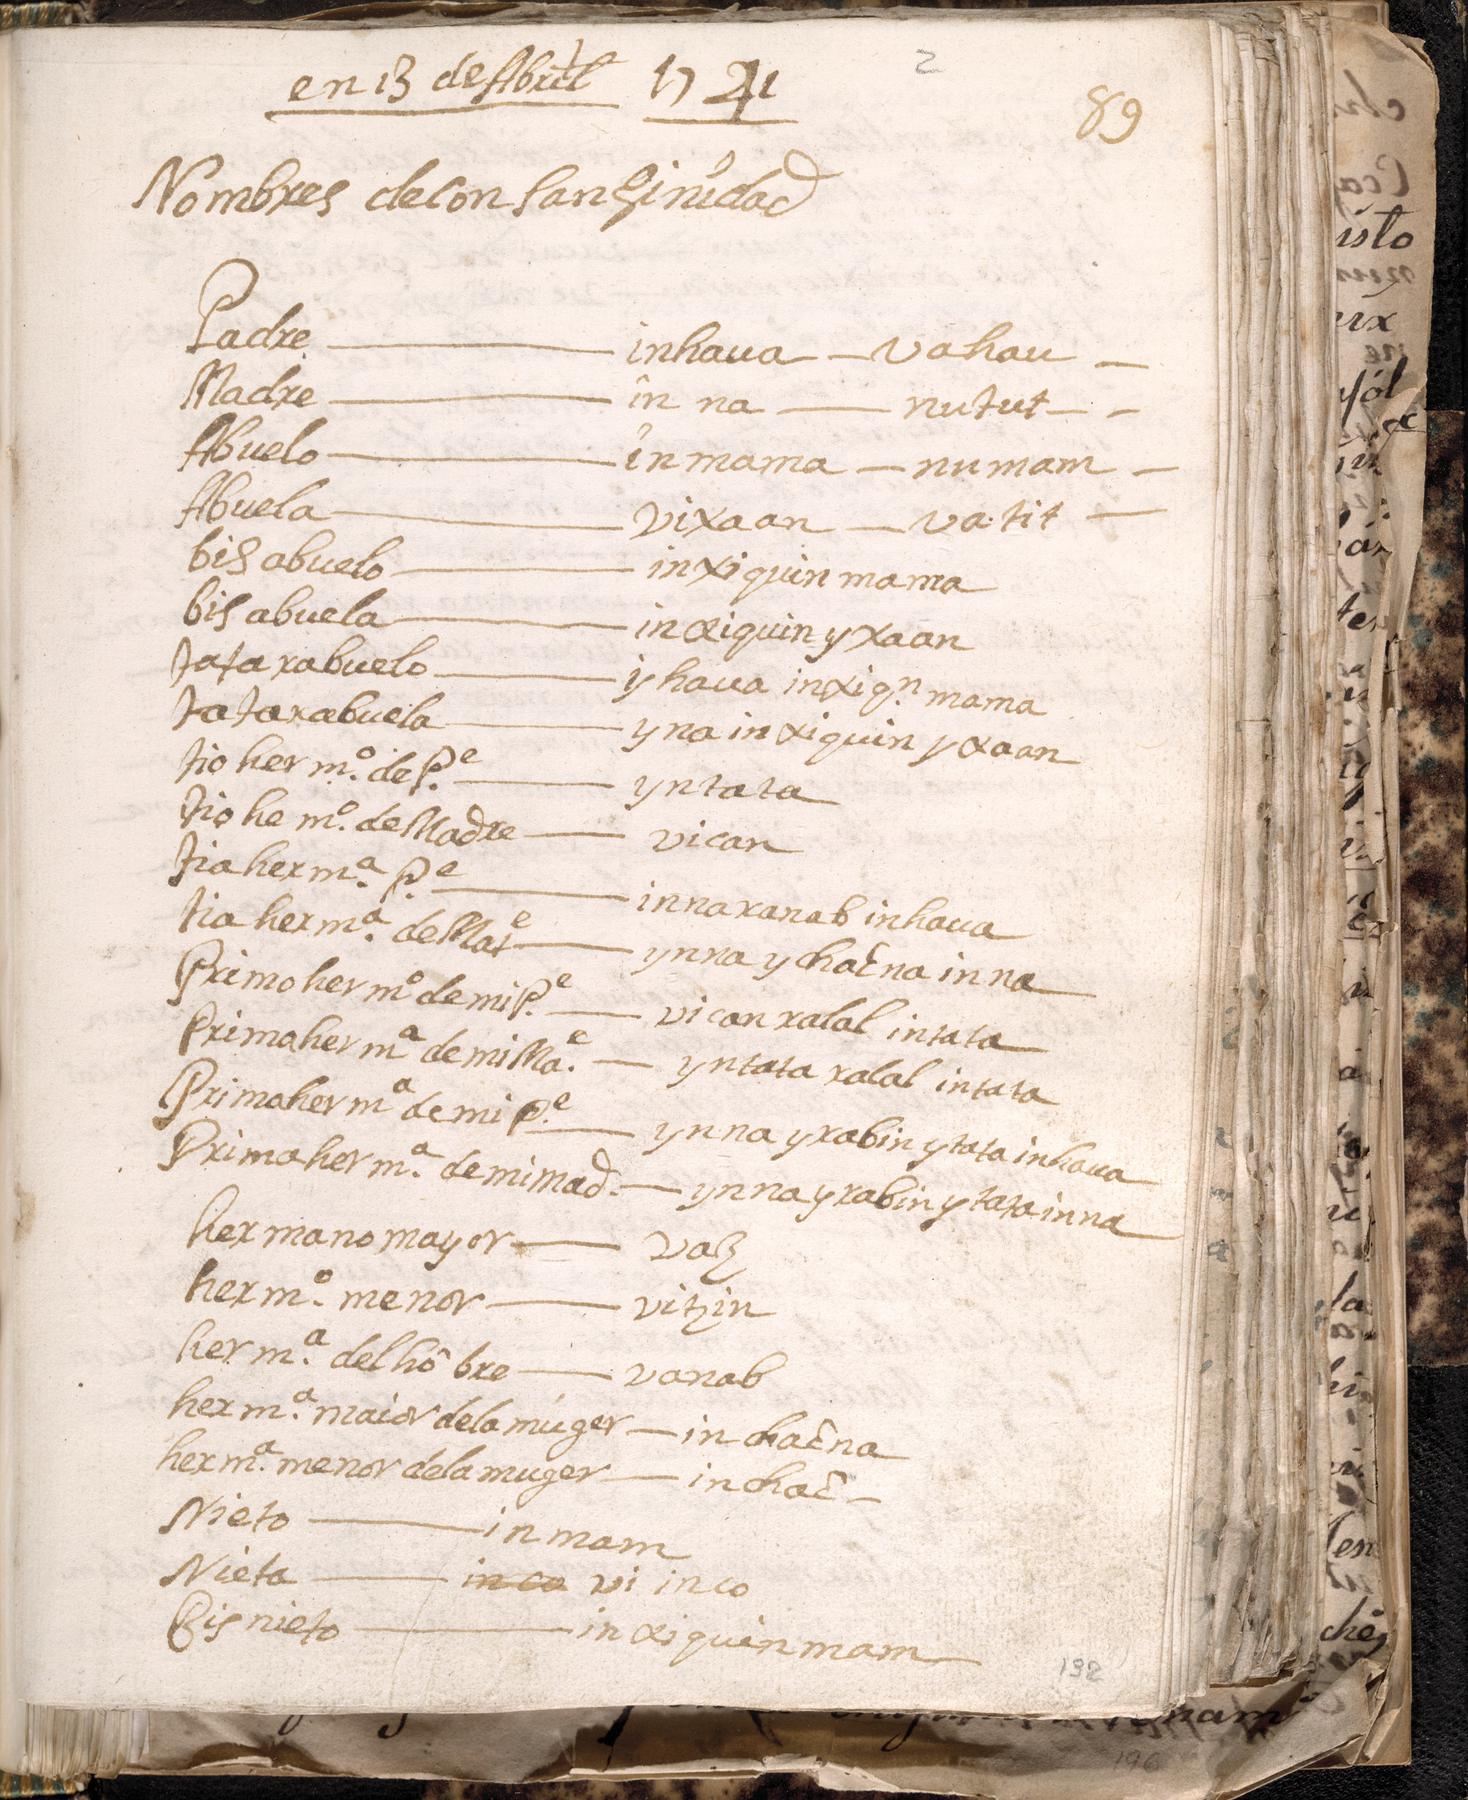 en 13 de Abril 1741
2
89
Nombres de Consanginidad
Padre — inhaua — vahau —
Madre — în na — nutut — -
Abuelo — în mama — numam —
Abuela — vixaan — vatit —
bis abuelo — inxiquin mama
bis abuela — inxiquin yxaan
tatarabuelo — yhaua inxiqn. mama
tatarabuela — yna inxiquin yxaan
tio herm.o de P.e — yntata
tio hem.o de Madre — vican
tia herm.a P.e — innaxanab inhaua
tia herm.a de Mate — ynna ychac̃na inna
Primo hermo de mi P.e — vicanxalal intata
Prima herma de mi Ma.e — yntata xalal intata
Prima herma de mi P.e — ynna yxabin ytata inhaua
Prima herm.a de mi mad. — ynna yxabin ytata in na
hermano mayor — vaꜫ
herm.o menor — vitzin
herm.a del hôbre — vanab
herm.a maior dela muger — in chac̃na
herm.a menor dela muger — inchac̃ —
Nieto — in mam
Nieta — in co vi inco
Bisnieto — inxiquin mam
192
196